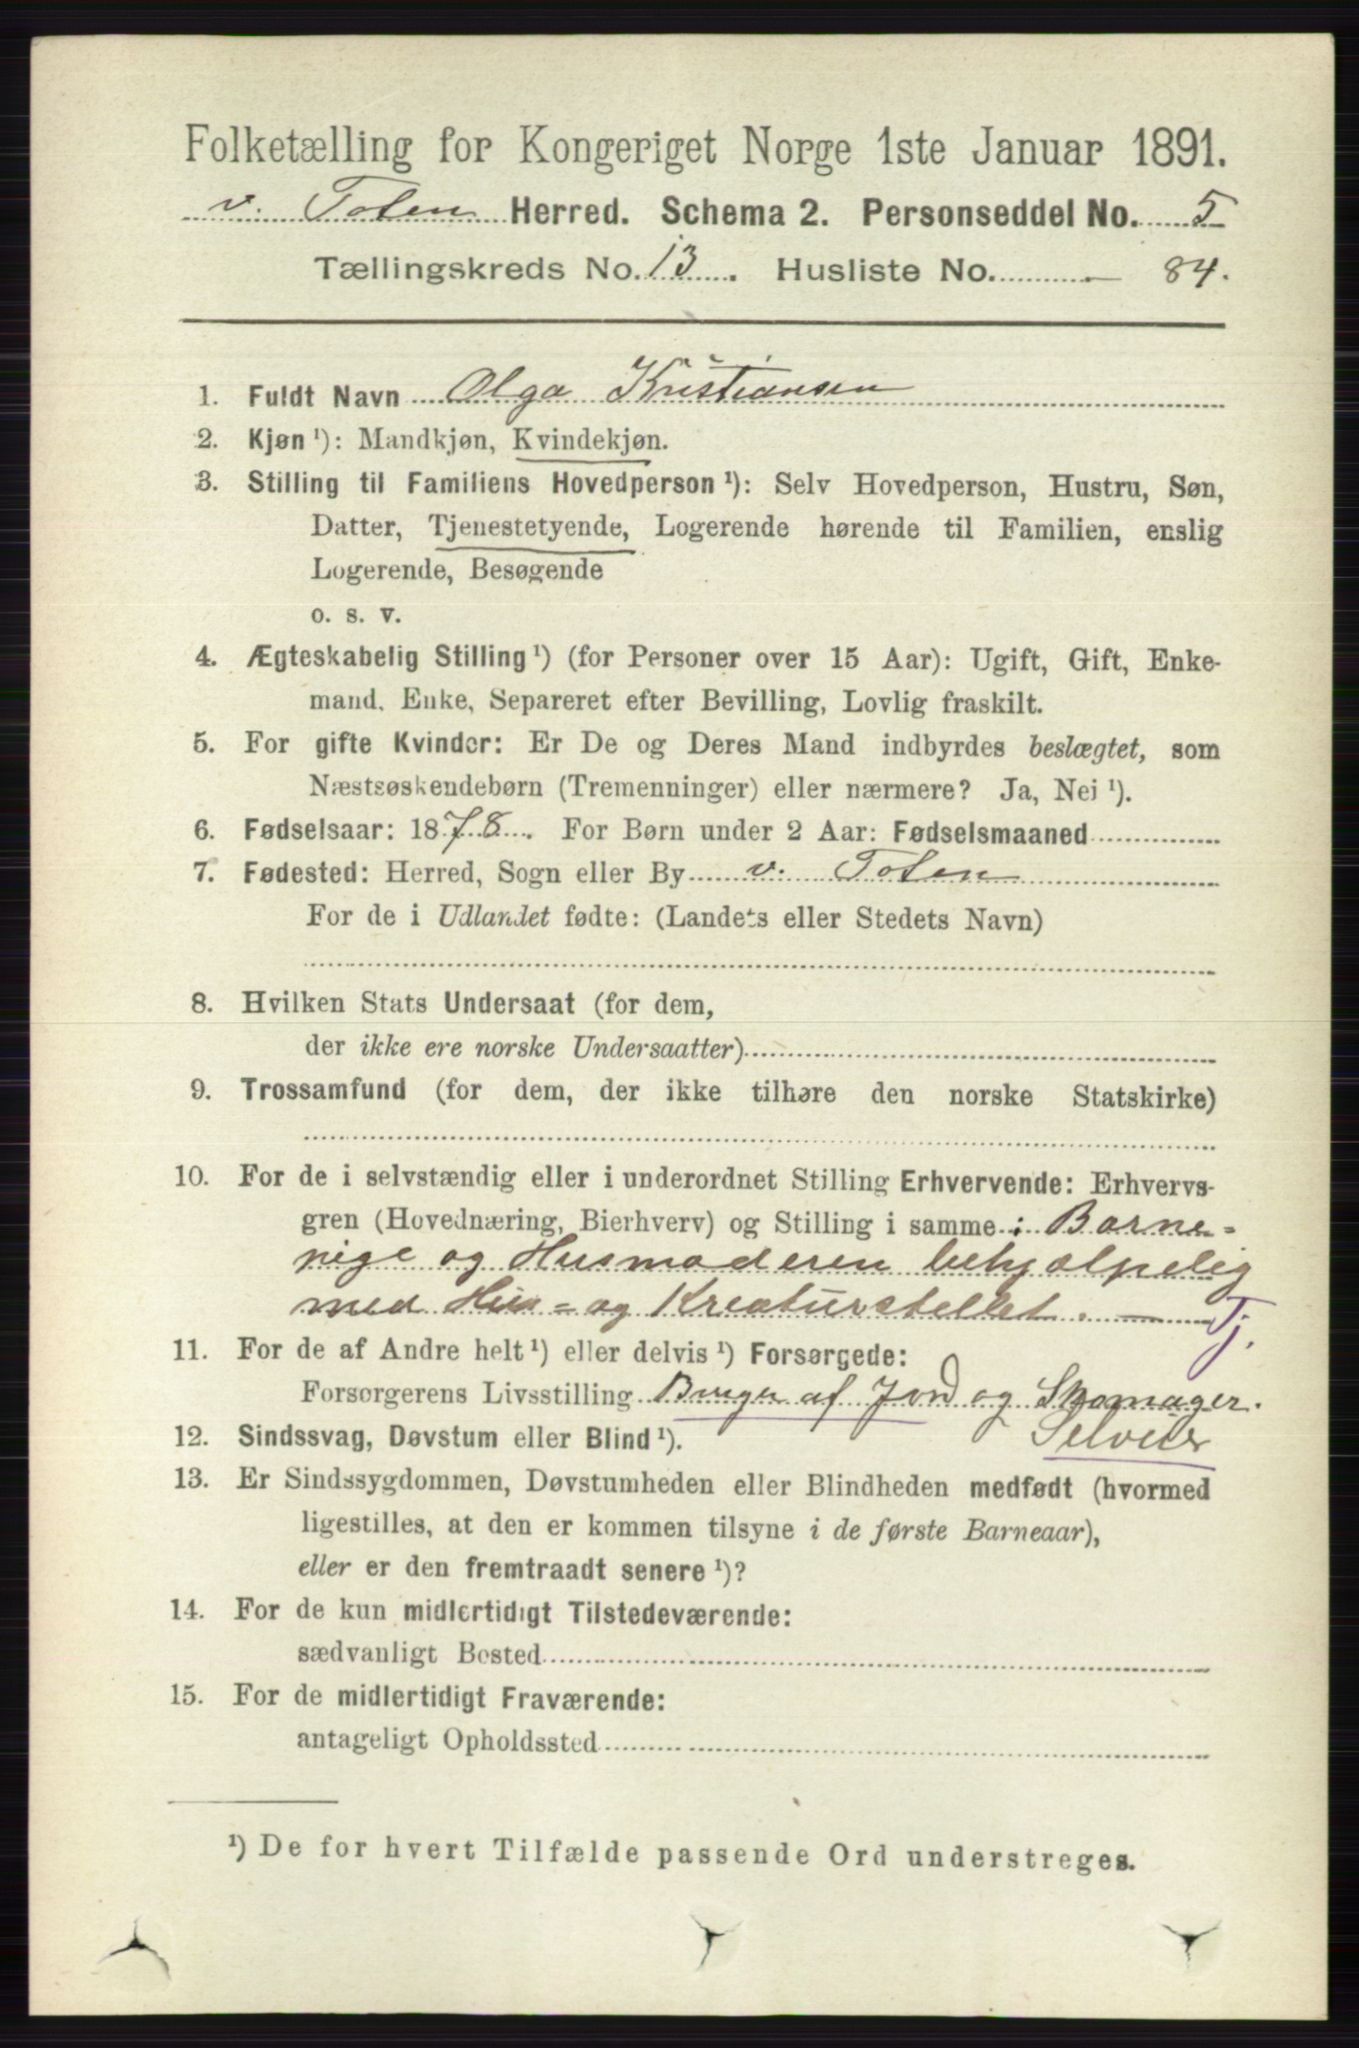 Folketælling for Kongeriget Norge 1ste Januar 1891.
v. Toten Herred. Schema 2. Personseddel No. 5
Tællingskreds No. 13. Husliste No. — 84.
1. Fuldt Navn Olga Kristiansen
2. Kjøn ¹): Mandkjøn, Kvindekjøn.
3. Stilling til Familiens Hovedperson ¹): Selv Hovedperson, Hustru, Søn,
Datter, Tjenestetyende, Logerende hørende til Familien, enslig
Logerende, Besøgende
o. s. v.
4. Ægteskabelig Stilling ¹) (for Personer over 15 Aar): Ugift, Gift, Enke-
mand, Enke, Separeret efter Bevilling, Lovlig fraskilt.
5. For gifte Kvinder: Er De og Deres Mand indbyrdes beslægtet, som
Næstsøskendebørn (Tremenninger) eller nærmere? Ja, Nei ¹).
6. Fødselsaar: 1878. For Børn under 2 Aar: Fødselsmaaned
7. Fødested: Herred, Sogn eller By v. Toten
For de i Udlandet fødte: (Landets eller Stedets Navn)
8. Hvilken Stats Undersaat (for dem,
der ikke ere norske Undersaatter)
9. Trossamfund (for dem, der ikke tilhøre den norske Statskirke)
10. For de i selvstændig eller i underordnet Stilling Erhvervende: Erhvervs-
gren (Hovednæring, Bierhverv) og Stilling i samme : Barne-
pige og Husmoderen behjælpelig
med Hus- og Kreaturstellet. — Tj.
11. For de af Andre helt ¹) eller delvis ¹) Forsørgede:
Forsørgerens Livsstilling Bruger af Jord og Skomager.
12. Sindssvag, Døvstum eller Blind ¹). Selveier
13. Er Sindssygdommen, Døvstumheden eller Blindheden medfødt (hvormed
ligestilles, at den er kommen tilsyne i de første Barneaar),
eller er den fremtraadt senere ¹)?
14. For de kun midlertidigt Tilstedeværende:
sædvanligt Bosted
15. For de midlertidigt Fraværende:
antageligt Opholdssted
¹) De for hvert Tilfælde passende Ord understreges.